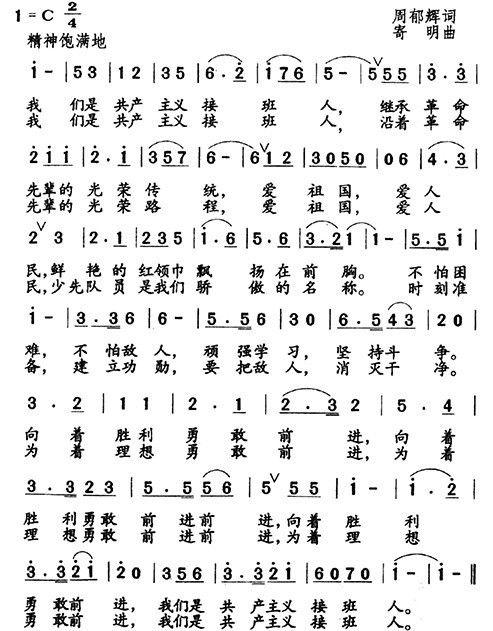 1=C 2/4
周郁辉词
精神饱满地
寄 明曲
i - | 53 | 12 | 35 | 6·2 | i76 | 5 - | 555 | 3·3 |
我 们是 共产 主义 接 班 人, 继承 革命
我 们是 共产 主义 接 班 人, 沿着 革命
2ii | 2·i | 357 | 6 - | 612 | 3050 | 06 | 4·3 |
先辈的 光荣传 统, 爱 祖 国, 爱人
先辈的 光荣路 程, 爱 祖 国, 爱人
2 3 | 2·1 | 235 | i·6 | 5·6 | 3·21 | 1 - | 5·5i |
民,鲜 艳 的 红领巾 飘 扬在 前 胸。 不怕困
民,少先队 员 是我们 骄 傲的 名 称。 时刻准
i - | 3·36 | 6 - | 5·56 | 30 | 6·543 | 20 |
难, 不 怕敌 人, 顽 强学 习, 坚 持斗 争。
备, 建 立功 勋, 要 把敌 人, 消 灭干 净。
3·2 | 11 | 2·1 | 2 | 2·3 | 2 | 5·4 |
向 着 胜利 勇 敢 前 进, 向着
为 着 理想 勇 敢 前 进, 为着
3·323 | 5·556 | 5 55 | i - | i·2 |
胜 利勇敢 前 进前 进,向着 胜 利
理 想勇敢 前 进前 进,为着 理 想
3·32i | 20 | 356 | 3·32i | 6070 | i - | i - ‖
勇 敢前 进, 我们是 共 产主义 接 班 人。
勇 敢前 进, 我们是 共 产主义 接 班 人。